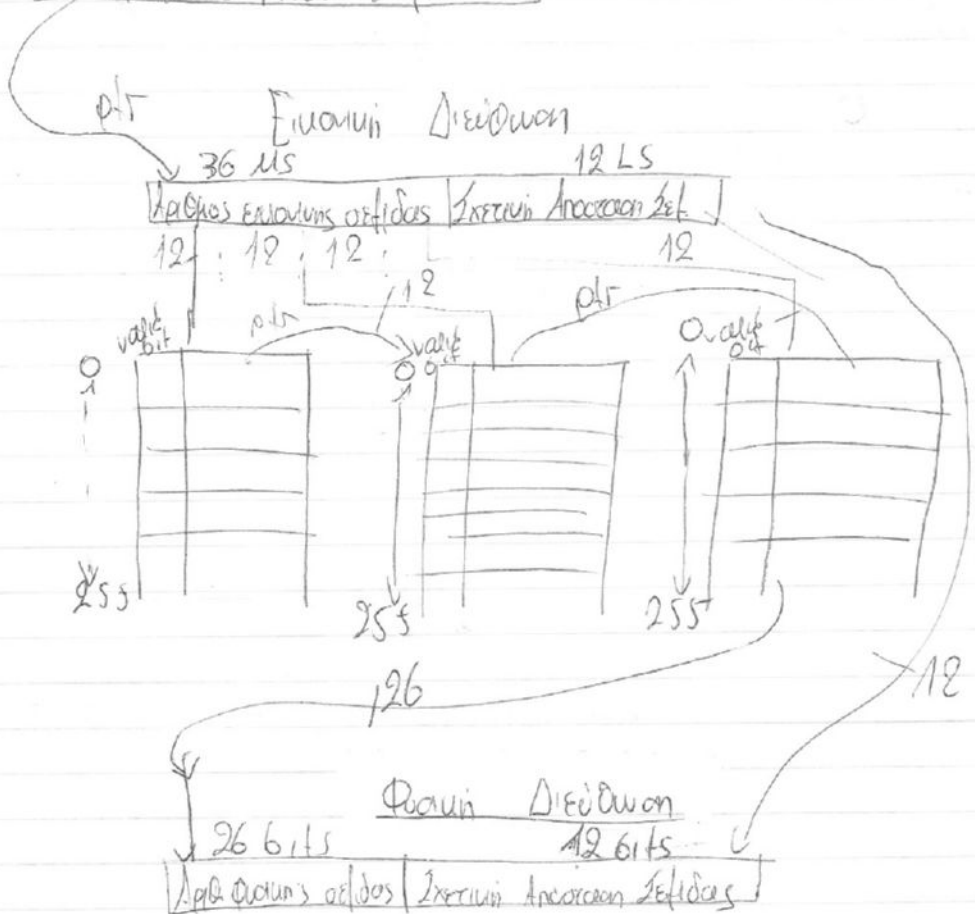 ptr
Εικονική Διεύθυνση
36 MS 12 LS
Αριθμος εικονικης σελιδας Σχετικη Αποσταση Σελ.
12 12 12 12
12
ptr
ptr
valid bit
valid bit
valid bit
0 0 0
1 1
255 255 255
12
26
Φυσική Διεύθυνση
26 bits 12 bits
Αριθ φυσικης σελιδας Σχετικη Αποσταση Σελιδας